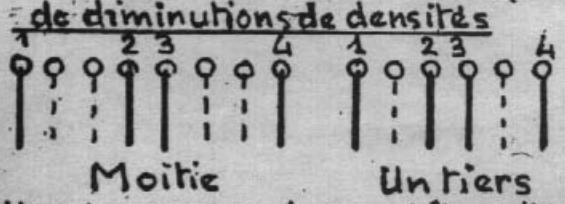 de diminutions de densités
1 2 3 4 1 2 3 4
Moitie Un tiers